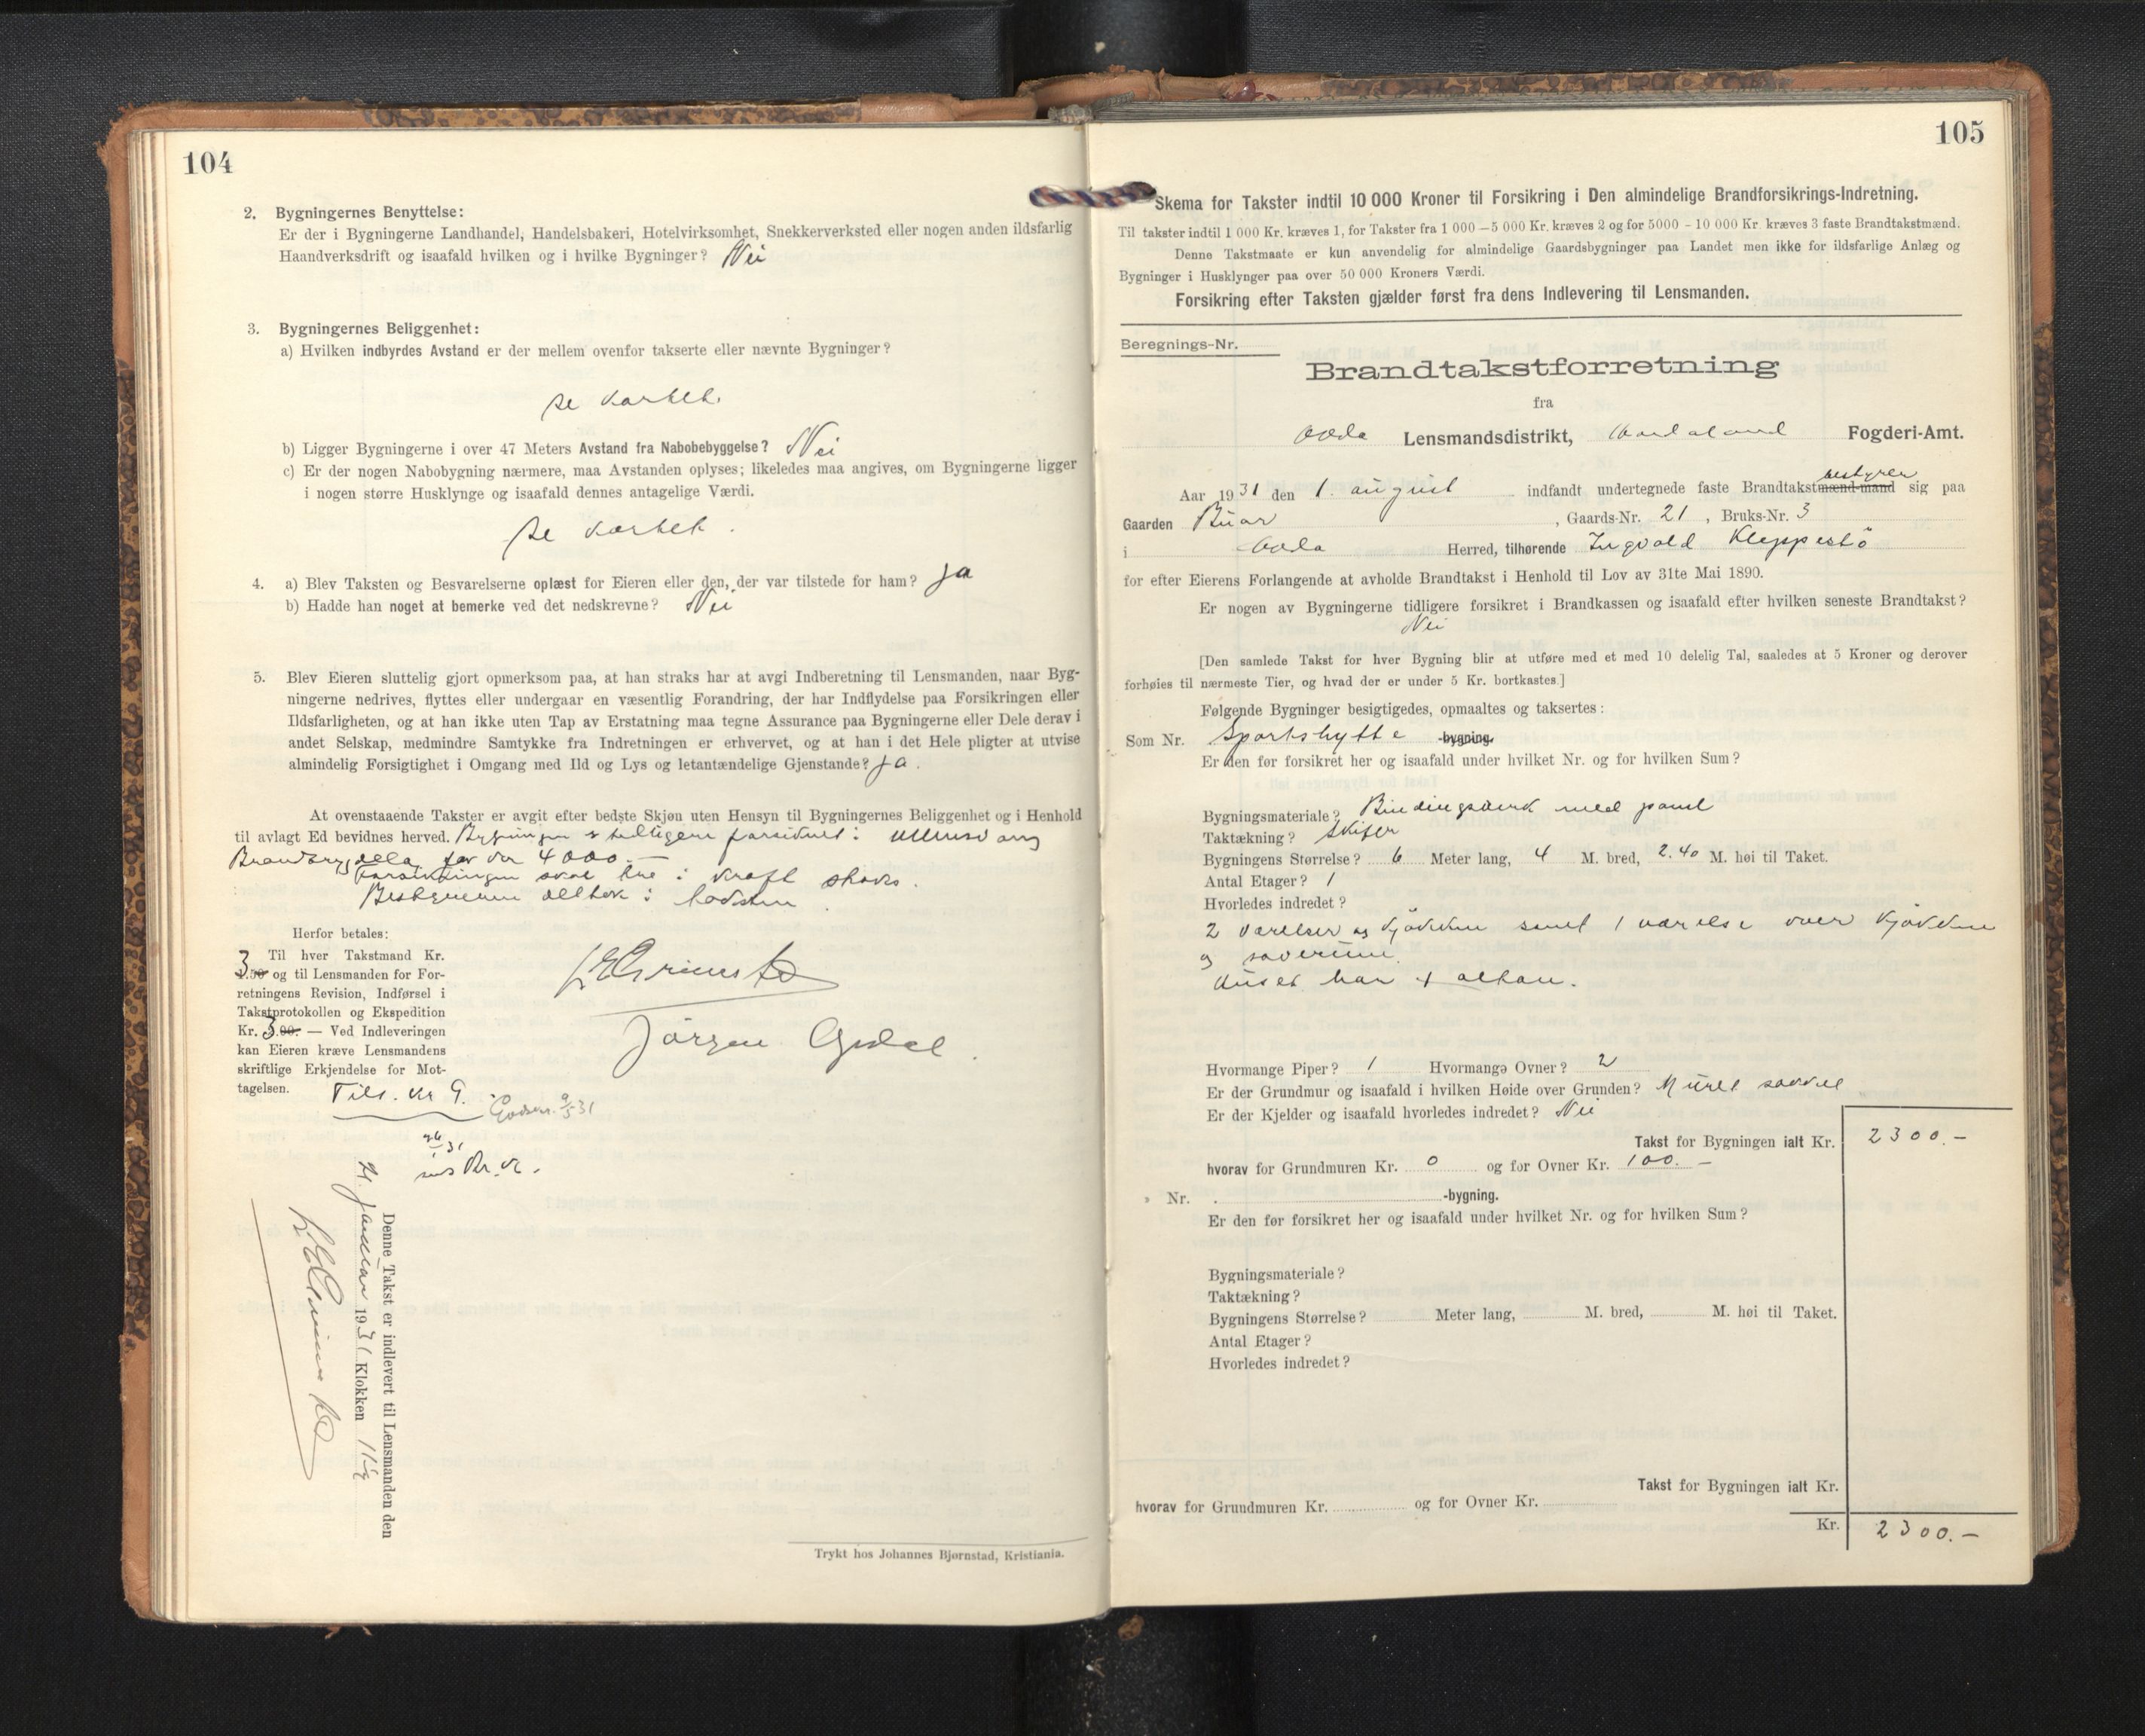 104
2. Bygningernes Benyttelse:
Er der i Bygningerne Landhandel, Handelsbakeri, Hotelvirksomhet, Snekkerverksted eller nogen anden ildsfarlig
Haandverksdrift og isaafald hvilken og i hvilke Bygninger? Nei
3. Bygningernes Beliggenhet:
a) Hvilken indbyrdes Avstand er der mellem ovenfor takserte eller nævnte Bygninger?
Se kartet.
b) Ligger Bygningerne i over 47 Meters Avstand fra Nabobebyggelse? Nei
c) Er der nogen Nabobygning nærmere, maa Avstanden oplyses; likeledes maa angives, om Bygningerne ligger
i nogen større Husklynge og isaafald dennes antagelige Værdi.
Se kartet.
4. a) Blev Taksten og Besvarelserne oplæst for Eieren eller den, der var tilstede for ham? Ja
b) Hadde han noget at bemerke ved det nedskrevne? Nei
5. Blev Eieren sluttelig gjort opmerksom paa, at han straks har at avgi Indberetning til Lensmanden, naar Byg-
ningerne nedrives, flyttes eller undergaar en væsentlig Forandring, der har Indflydelse paa Forsikringen eller
Ildsfarligheten, og at han ikke uten Tap av Erstatning maa tegne Assurance paa Bygningerne eller Dele derav i
andet Selskap, medmindre Samtykke fra Indretningen er erhvervet, og at han i det Hele pligter at utvise
almindelig Forsigtighet i Omgang med Ild og Lys og letantændelige Gjenstande? Ja.
At ovenstaaende Takster er avgit efter bedste Skjøn uten Hensyn til Bygningernes Beliggenhet og i Henhold
til avlagt Ed bevidnes herved. Bygningen er tidligere forsikret i Ullensvang
for kr 4000.—
Forsikringen skal tre i kraft straks.
Herfor betales:
Til hver Takstmand Kr.
3 og til Lensmanden for For-
retningens Revision, Indførsel i
Takstprotokollen og Ekspedition
Kr. 3.00. — Ved Indleveringen
kan Eieren kræve Lensmandens
skriftlige Erkjendelse for Mot-
tagelsen. Tils. kr 9.
Jørgen
Denne Takst er indlevert til Lensmanden den
21. Januar 1931 Klokken 11
Trykt hos Johannes Bjørnstad, Kristiania.
105
Skema for Takster indtil 10 000 Kroner til Forsikring i Den almindelige Brandforsikrings-Indretning.
Til takster indtil 1 000 Kr. kræves 1, for Takster fra 1 000 — 5 000 Kr. kræves 2 og for 5000 - 10 000 Kr. kræves 3 faste Brandtakstmænd.
Denne Takstmaate er kun anvendelig for almindelige Gaardsbygninger paa Landet men ikke for ildsfarlige Anlæg og
Bygninger i Husklynger paa over 50 000 Kroners Værdi.
Forsikring efter Taksten gjælder først fra dens Indlevering til Lensmanden.
Beregnings-Nr.
Brandtakstforretning
fra
Odda Lensmandsdistrikt, Hordaland Fogderi-Amt.
bestyrer
Aar 1931 den 1. august indfandt undertegnede faste Brandtakstmænd-mand sig paa
Gaarden Buar, Gaards-Nr. 21, Bruks-Nr. 3
i Odda Herred, tilhørende Ingvald Kleppestö
for efter Eierens Forlangende at avholde Brandtakst i Henhold til Lov av 31te Mai 1890.
Er nogen av Bygningerne tidligere forsikret i Brandkassen og isaafald efter hvilken seneste Brandtakst?
Nei
[Den samlede Takst for hver Bygning blir at utføre med et med 10 delelig Tal, saaledes at 5 Kroner og derover
forhøies til nærmeste Tier, og hvad der er under 5 Kr. bortkastes.]
Følgende Bygninger besigtigedes, opmaaltes og taksertes:
Som Nr. Sportshytte -bygning.
Er den før forsikret her og isaafald under hvilket Nr. og for hvilken Sum?
Bygningsmateriale? Bindingsverk med panel
Taktækning? Skifer
Bygningens Størrelse? 6 Meter lang, 4 M. bred, 2.40 M. høi til Taket.
Antal Etager? 1
Hvorledes indredet?
2 værelser og kjøkken samt 1 værelse over kjøkken
og soverum.
Huset har 1 altan.
Hvormange Piper? 1 Hvormange Ovner? 2
Er der Grundmur og isaafald i hvilken Høide over Grunden? Muret
Er der Kjelder og isaafald hvorledes indredet? Nei
Takst for Bygningen ialt Kr. 2300.-
hvorav for Grundmuren Kr. 0 og for Ovner Kr. 100.-
» Nr. -bygning.
Er den før forsikret her og isaafald under hvilket Nr. og for hvilken Sum?
Bygningsmateriale?
Taktækning?
Bygningens Størrelse? Meter lang, M. bred, M. høi til Taket.
Antal Etager?
Hvorledes indredet?
Takst for Bygningen ialt Kr.
hvorav for Grundmuren Kr. og for Ovner Kr.
Kr. 2300.-